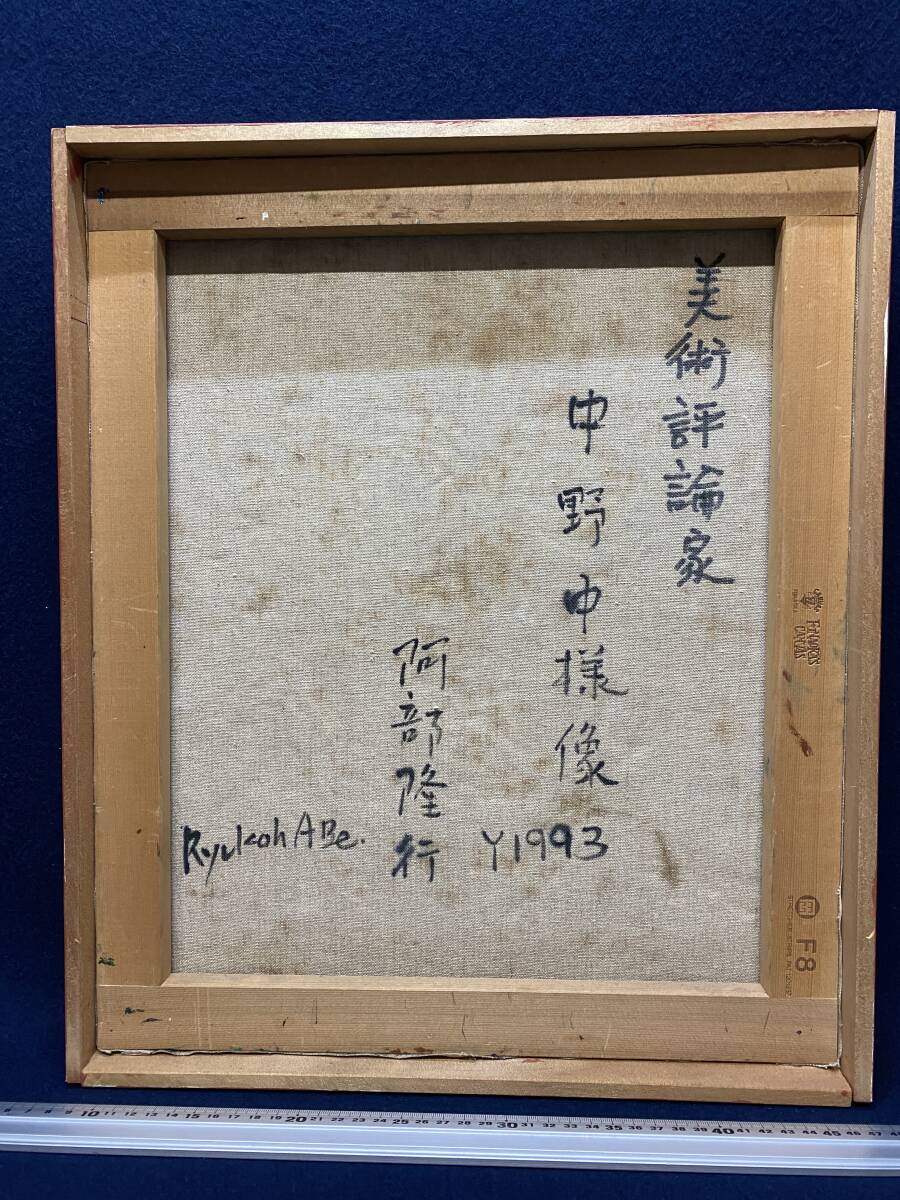 美術評論家
中野中様像
阿部隆行
Y1993
Ryukoh ABe.
CANVAS
F8
10 11 12 13 14 15 16 17 18 19 20 21 22 23 24 25 26 27 28 29 30 31 32 33 34 35 36 37 38 39 40 41 42 43 44 45 46 47